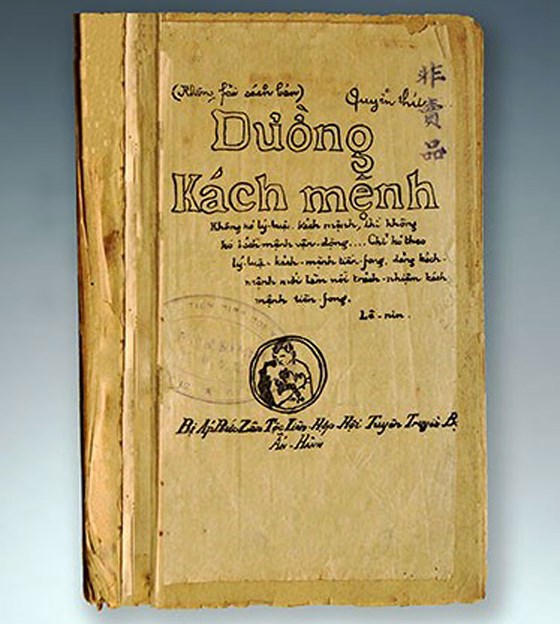 (Không fải sách bán) Quyển thứ
非賣品
Đường
Kách mệnh
Không kó lý-luận kách mệnh, thì không
kó kách mệnh vận-động.... Chỉ kó theo
lý-luận kách-mệnh tiền-fong, đảng kách-
mệnh mới làm nổi trách-nhiệm kách
mệnh tiền-fong.
Lê-nin.
Bị Áp Bức Zân Tộc Liên Hợp Hội Tuyên Truyền Bộ
Ấn-Hành